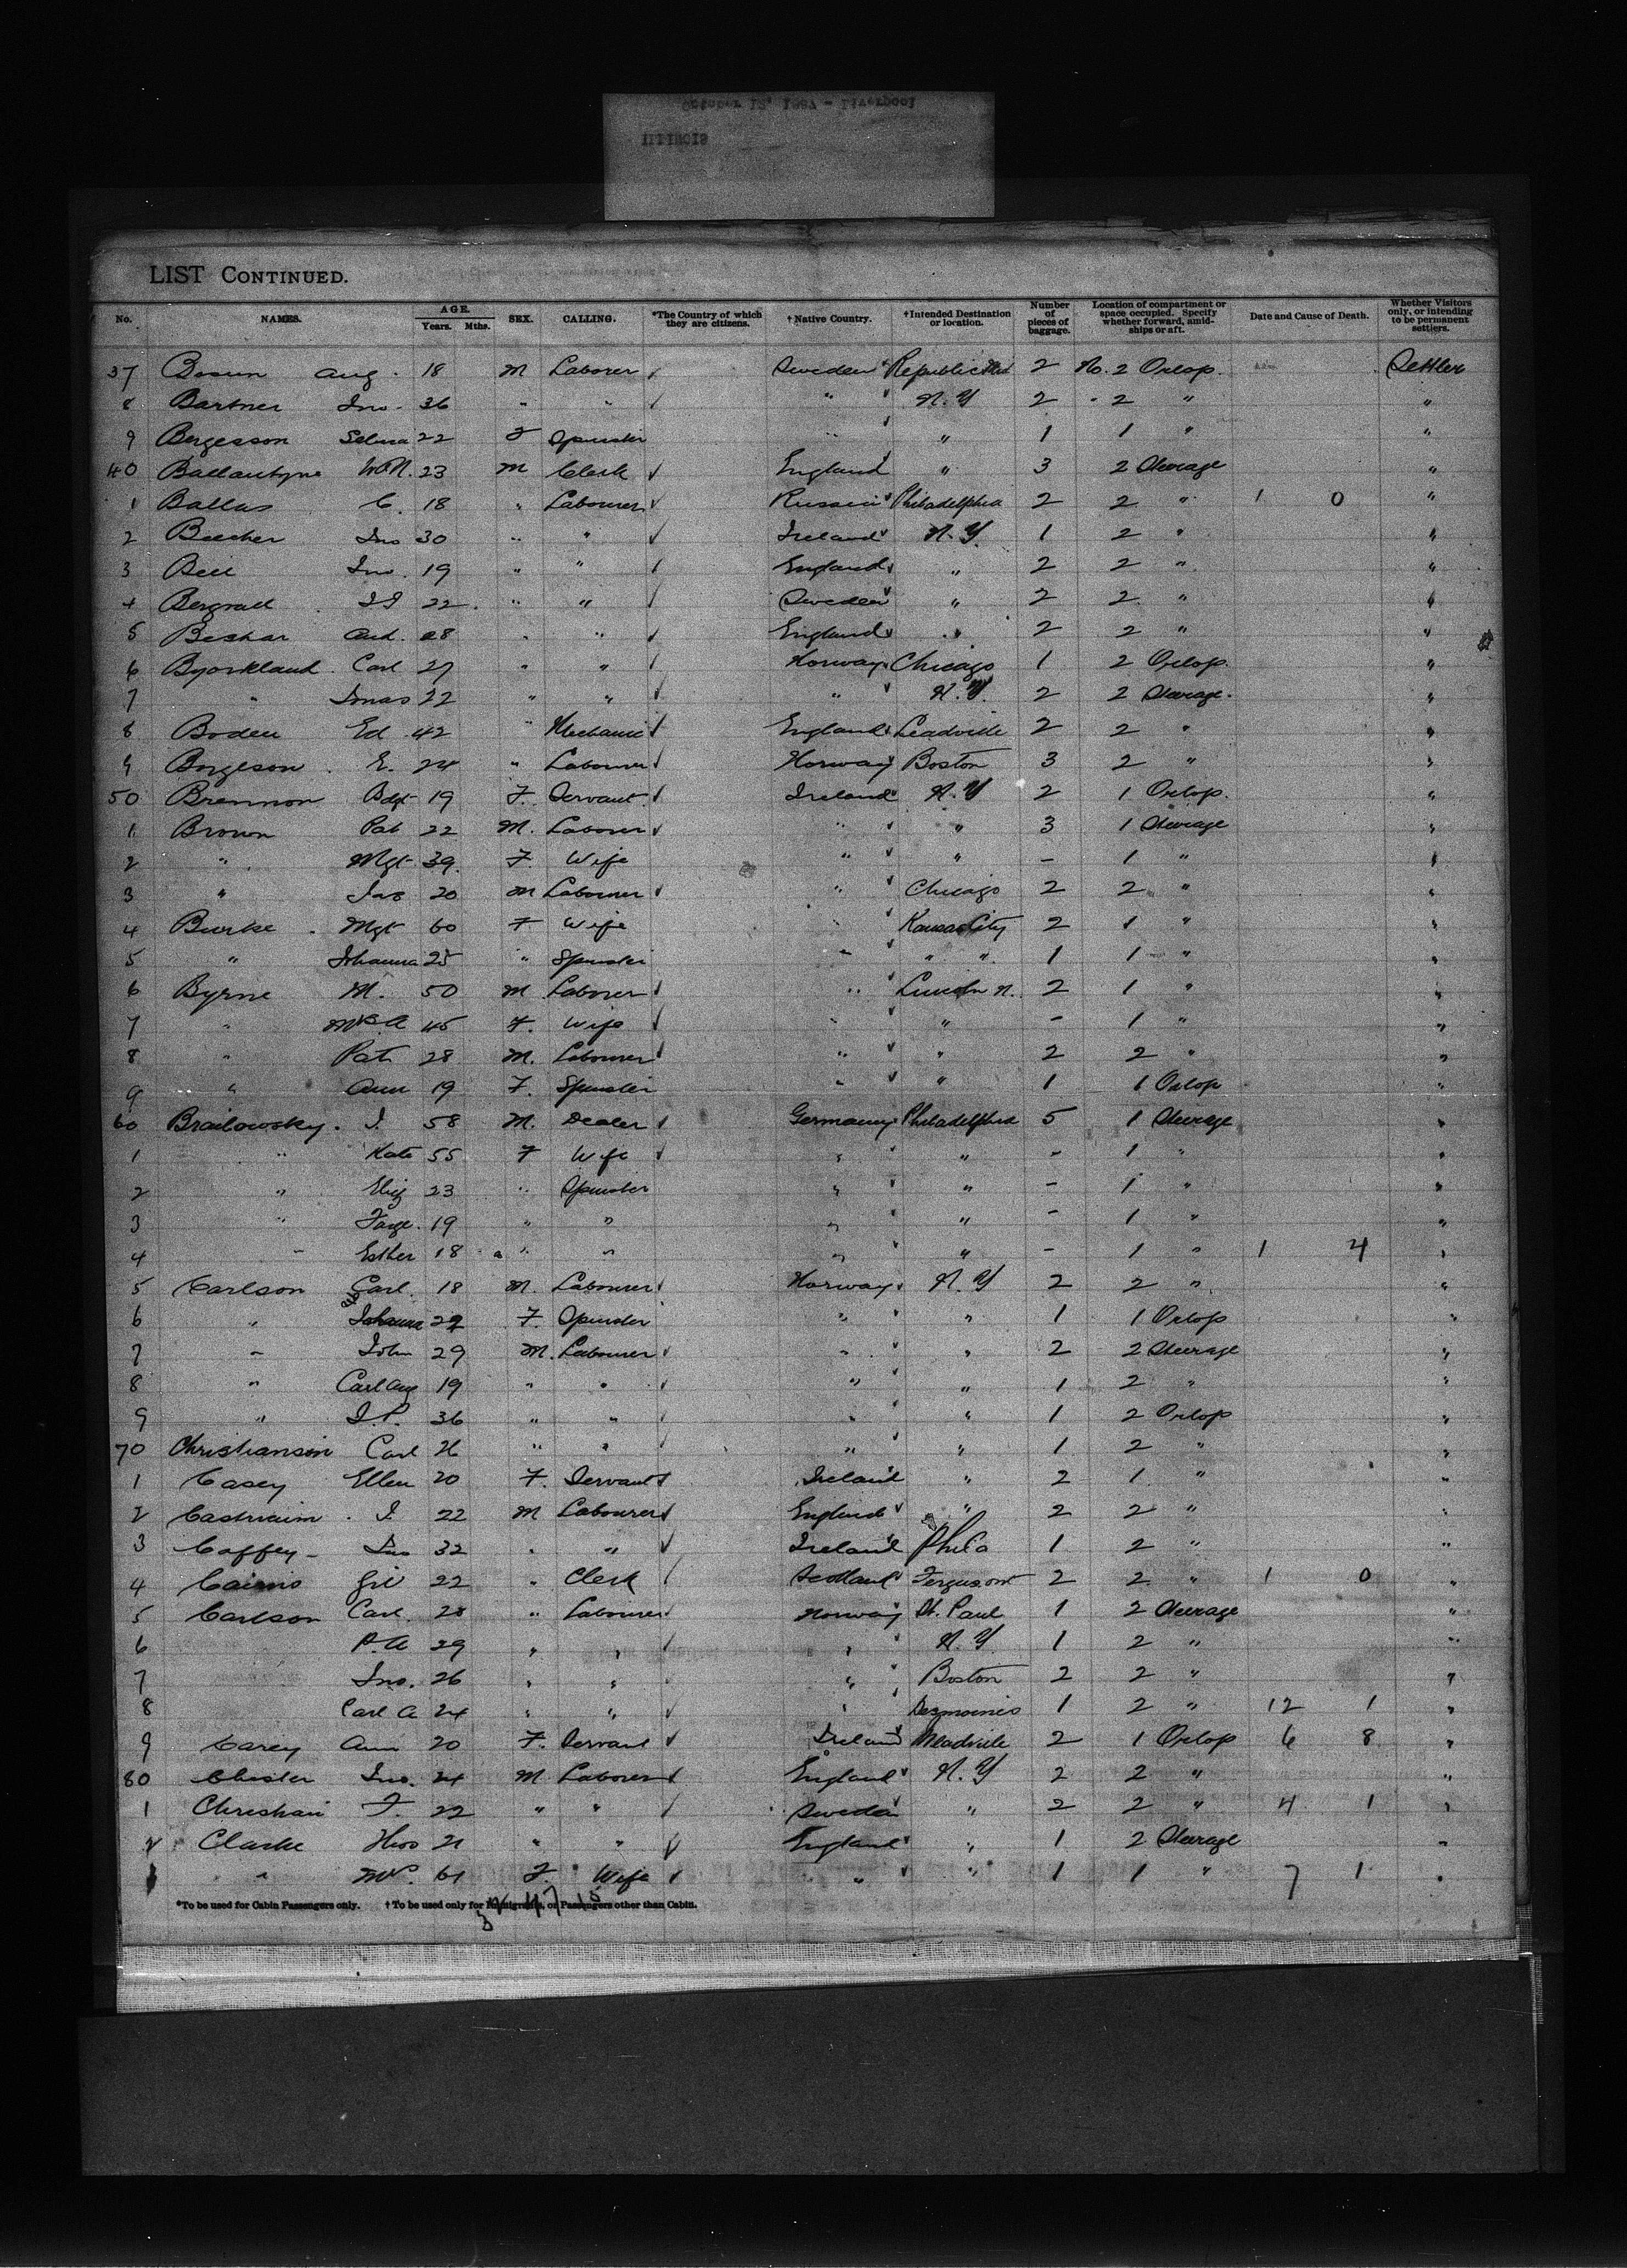 October 12, 1887 - Liverpool
ILLINOIS
LIST CONTINUED.
No. NAMES. AGE. Years. Mths. SEX. CALLING. *The Country of which they are citizens. †Native Country. †Intended Destination or location. Number of pieces of baggage. Location of compartment or space occupied. Specify whether forward, amidships or aft. Date and Cause of Death. Whether Visitors only, or intending to be permanent settlers.
37 Aug. 18 M Laborer Sweden 2 No. 2 Orlop. Settler
8 Bartner Jno. 36 " " " N.Y 2 " 2 " "
9 Bergesson Selma 22 F Spinster " " 1 1 " "
40 Ballantyne 23 M Clerk England " 3 2 Steerage "
1 Ballas C. 18 " Labourer Russia Philadelphia 2 2 " 1 0 "
2 Beecher Jno 30 " " Ireland N.Y. 1 2 " "
3 Bell Jno. 19 " " England " 2 2 " "
4 22 " " Sweden " 2 2 " "
5 28 " " England " 2 2 " "
6 Byorkland Carl 27 " " Norway Chicago 1 2 Orlop "
7 " Jonas 22 " " " N.Y. 2 2 Steerage "
8 Boden Ed 42 " Mechanic England Leadville 2 2 " "
9 Borgeson E. 24 " Labourer Norway Boston 3 2 " "
50 Brennon Bdgt 19 F. Servant Ireland N.Y 2 1 Orlop. "
1 Brown Pat 22 M. Laborer " " 3 1 Steerage "
2 " Mgt 39 F. Wife " " - 1 " "
3 " Jas 20 M Labourer " Chicago 2 2 " "
4 Burke Mgt 60 F Wife " Kansas City 2 1 " "
5 " Johanna 25 " Spinster " " " 1 1 " "
6 Byrne M. 50 M Laborer " Lincoln N. 2 1 " "
7 " Mrs A 45 F. Wife " " - 1 " "
8 " Pat 28 M. Labourer " " 2 2 " "
9 " Ann 19 F. Spinster " " 1 1 Orlop "
60 Brailowsky. J. 58 M. Dealer Germany Philadelphia 5 1 Steerage "
1 " Kate 55 F Wife " " - 1 " "
2 " Eliz 23 " Spinster " " - 1 " "
3 " 19 " " " " - 1 " "
4 " Esther 18 " " " " - 1 " 1 4 "
5 Carlson Carl. 18 M. Labourer Norway N.Y 2 2 " "
6 " Johanna F. Spinster " " 1 1 Orlop "
7 " John 29 M. Labourer " " 2 2 Steerage "
8 " Carl Aug 19 " " " " 1 2 " "
9 " J.P. 36 " " " " 1 2 Orlop "
70 Christianson Carl 26 " " " " 1 2 " "
1 Casey Ellen 20 F. Servant Ireland " 2 1 " "
2 J. 22 M Labourer England " 2 2 " "
3 Caffey Jno 32 " " Ireland Phila 1 2 " "
4 Cairns 22 " Clerk Scotland 2 2 " 1 0 "
5 Carlson Carl. 28 " Labourer Norway St. Paul 1 2 Steerage "
6 P.A 29 " " " N.Y 1 2 " "
7 Jno. 26 " " " Boston 2 2 " "
8 Carl A 24 " " " Desmoines 1 2 " 12 1 "
9 Carey Ann 20 F. Servant Ireland Meadville 2 1 Orlop 6 8 "
80 Chester Jno. 24 M Laborer England N.Y 2 2 " "
1 Christian F. 22 " " Sweden " 2 2 " 4 1 "
2 Clarke Thos 21 " " England " 1 2 Steerage "
" Mrs. 61 F. Wife " " 1 1 " 7 1 "
*To be used for Cabin Passengers only. †To be used only for Immigrants, or Passengers other than Cabin.